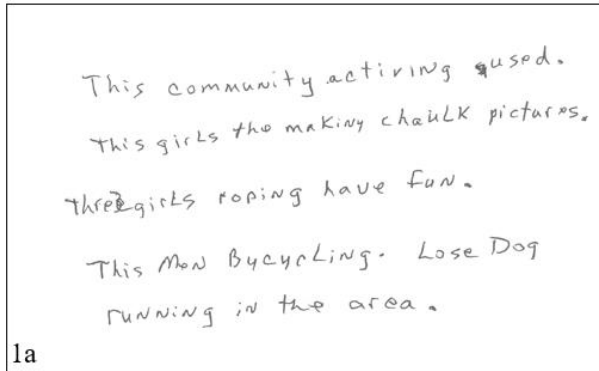 This community activing used.
This girls the making chaulk pictures.
three girls roping have fun.
This Men Bycycling. Lose Dog
running in the area.
1a